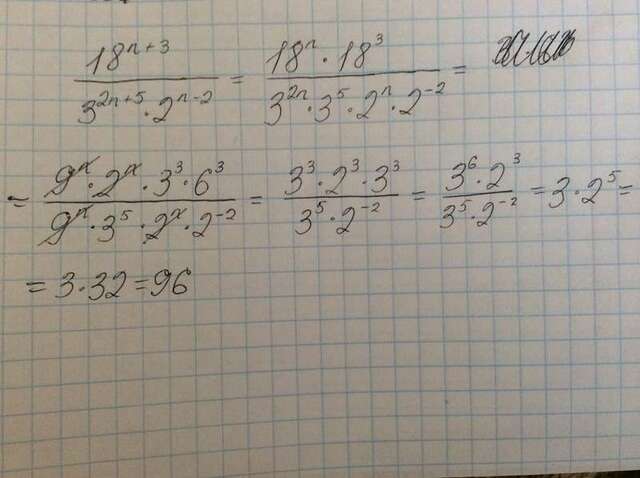 18^{n+3} / 3^{2n+5} · 2^{n-2} = 18^n · 18^3 / 3^{2n} · 3^5 · 2^n · 2^{-2} =
= 9^n · 2^n · 3^3 · 6^3 / 9^n · 3^5 · 2^n · 2^{-2} = 3^3 · 2^3 · 3^3 / 3^5 · 2^{-2} = 3^6 · 2^3 / 3^5 · 2^{-2} = 3 · 2^5 =
= 3 · 32 = 96